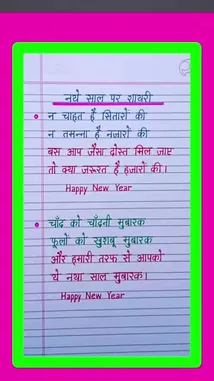 नये साल पर शायरी
न चाहत है सितारों की
न तमन्ना है नजारों की
बस आप जैसा दोस्त मिल जाए
तो क्या जरूरत है हजारों की।
Happy New Year
चाँद को चाँदनी मुबारक
फूलों को खुशबू मुबारक
और हमारी तरफ से आपको
ये नया साल मुबारक।
Happy New Year